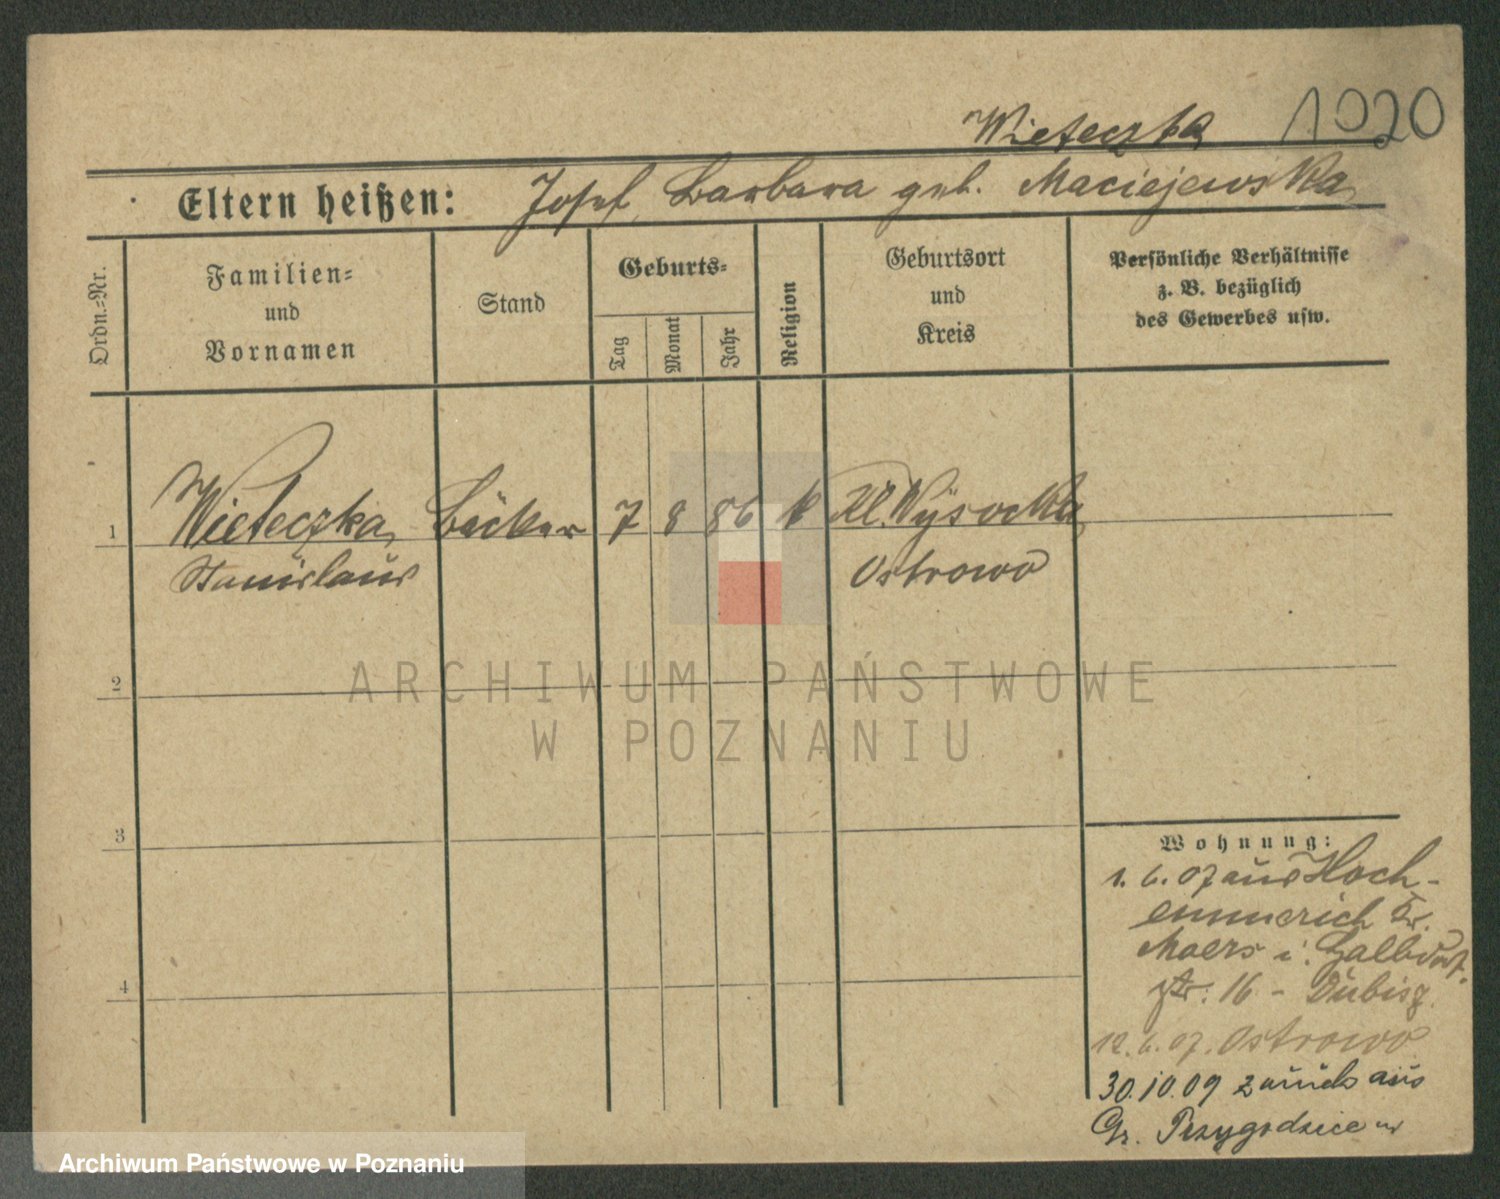 Wieteczka 1020
Eltern heißen: Josef, Barbara geb. Maciejewska
Ordn.=Nr.
Familien=
und
Vornamen
Stand
Geburts=
Tag
Monat
Jahr
Religion
Geburtsort
und
Kreis
Persönliche Verhältnisse
z. B. bezüglich
des Gewerbes usw.
1 Wieteczka, Bäcker 7 8 86 k Kl. Wysocko
Stanislaus Ostrowo
2
3
4
Wohnung:
1. 6. 07 aus Hoch-
emmerich Kr.
Moers i.
str. 16 - Dubisz
12. 6. 07. Ostrowo
30.10.09 zurück aus
Gr. Przygodzice
ARCHIWUM PAŃSTWOWE
W POZNANIU
Archiwum Państwowe w Poznaniu